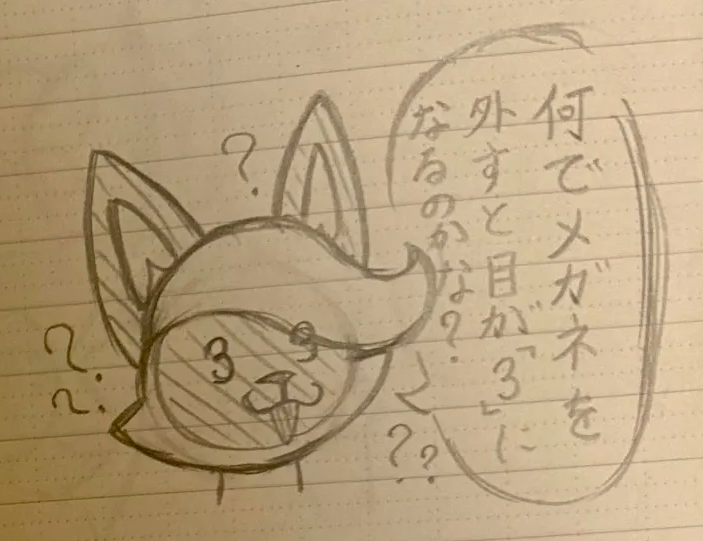 何でメガネを
外すと目が「3」に
なるのかな？
?
?
?
??
3 3